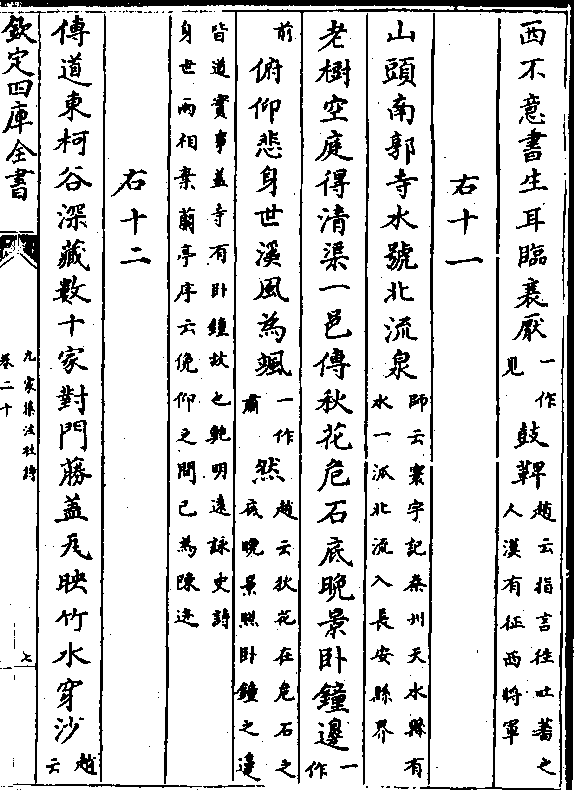 西不意書生耳臨衰厭一作見鼓鞞趙云指言往吐蕃之人漢有征西將軍
右十一
山頭南郭寺水號北流泉師云寰宇記秦州天水縣有水一派北流入長安縣界
老樹空庭得清渠一邑傳秋花危石底晚景卧鐘邊一作
前俯仰悲身世溪風為颯一作肅然趙云秋花在危石之底晚景照卧鐘之邊
皆道實事蓋寺有卧鐘故之鮑明遠詠史詩身世兩相棄蘭亭序云俛仰之間已為陳迹
右十二
傳道東柯谷深藏數十家對門藤蓋瓦映竹水穿沙趙云
欽定四庫全書
九家集注杜詩
卷二十
七